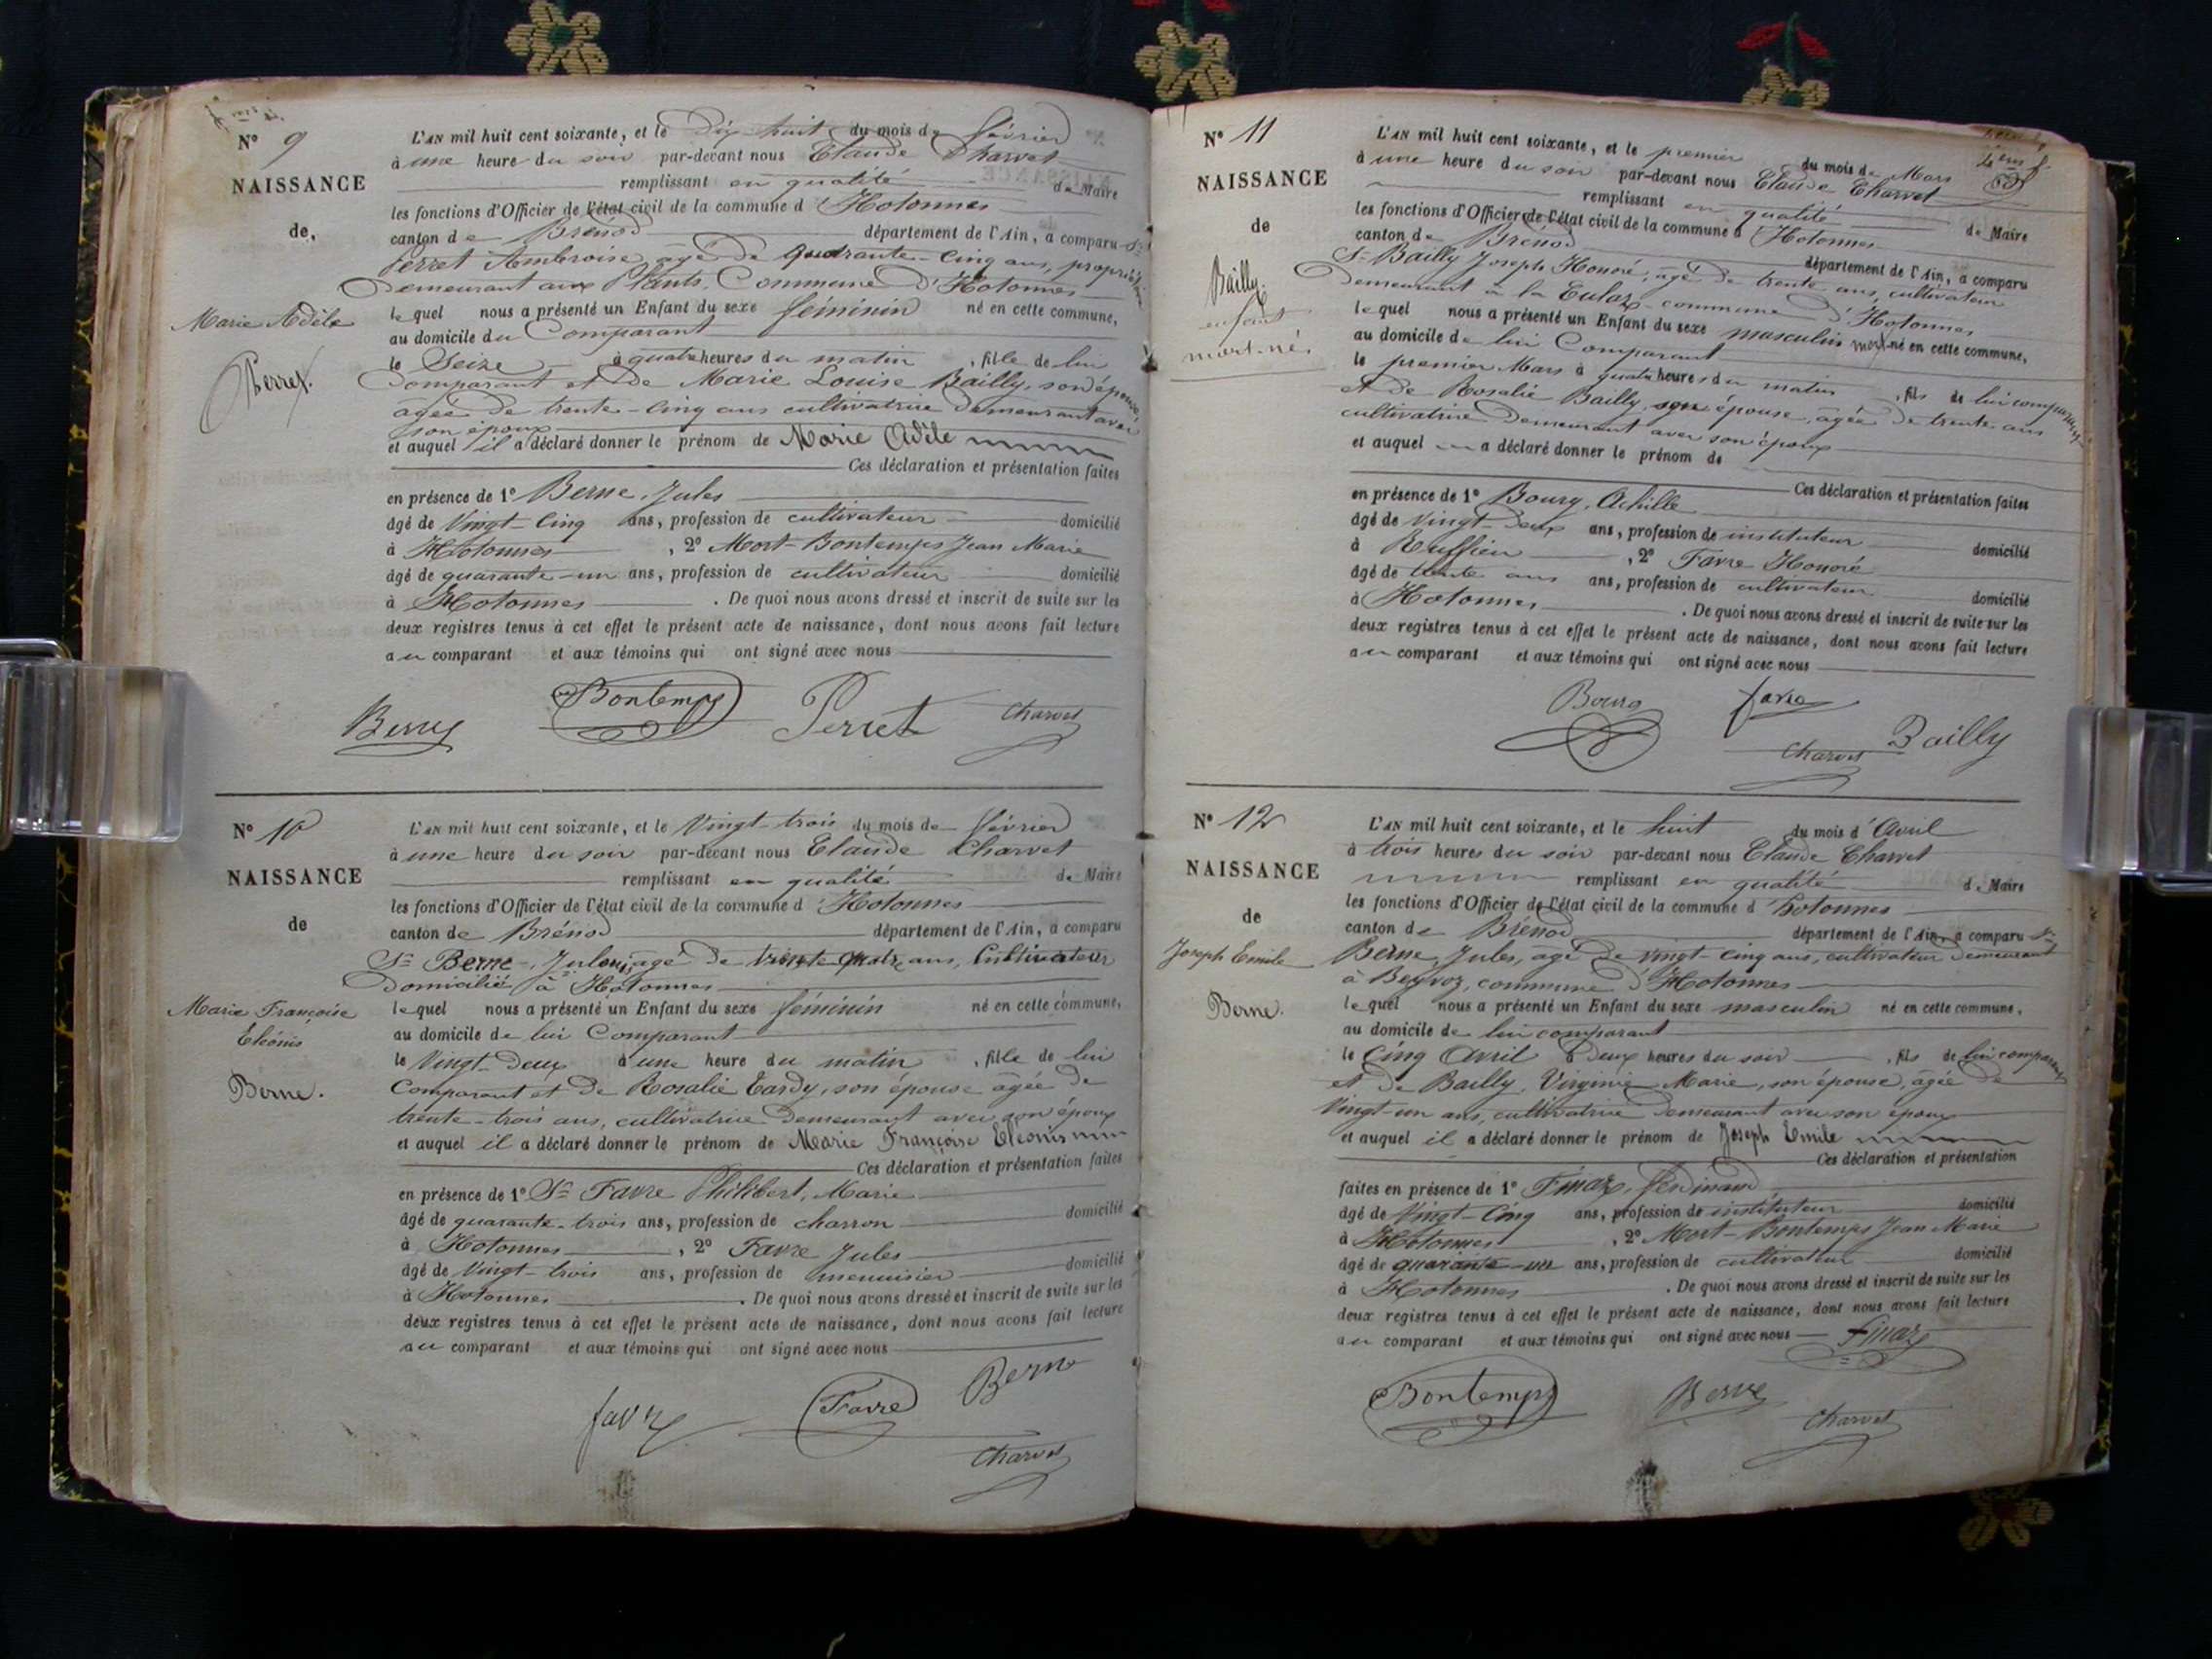 N° 9
NAISSANCE
de
Marie Adèle
Perret.
L'AN mil huit cent soixante, et le Dix huit du mois de février
à une heure du soir par-devant nous Claude Charvet
remplissant en qualité de Maire
les fonctions d'Officier de l'état civil de la commune d'Hotonnes
canton de Brénod département de l'Ain, a comparu Sr
Perret Ambroise, âgé de quarante-cinq ans, propriétaire
demeurant aux Plants, Commune d'Hotonnes
lequel nous a présenté un Enfant du sexe féminin né en cette commune,
au domicile du Comparant
le Seize à quatre heures du matin, fille de lui
Comparant et de Marie Louise Bailly, son épouse,
âgée de trente-cinq ans cultivatrice demeurant avec
son époux
et auquel il a déclaré donner le prénom de Marie Adèle
Ces déclaration et présentation faites
en présence de 1° Berne, Jules
âgé de Vingt-Cinq ans, profession de cultivateur domicilié
à Hotonnes, 2° Mort-Bontemps Jean Marie
âgé de quarante-un ans, profession de cultivateur domicilié
à Hotonnes. De quoi nous avons dressé et inscrit de suite sur les
deux registres tenus à cet effet le présent acte de naissance, dont nous avons fait lecture
au comparant et aux témoins qui ont signé avec nous
Berne Bontemps Perret Charvet
N° 10
NAISSANCE
de
Marie Françoise
Eléonis
Berne.
L'AN mil huit cent soixante, et le Vingt-trois du mois de février
à une heure du soir par-devant nous Claude Charvet
remplissant en qualité de Maire
les fonctions d'Officier de l'état civil de la commune d'Hotonnes
canton de Brénod département de l'Ain, a comparu
Sr Berne, âgé de ans, Cultivateur
Domicilié à Hotonnes
lequel nous a présenté un Enfant du sexe féminin né en cette commune,
au domicile de lui Comparant
le Vingt-Deux à une heure du matin, fille de lui
Comparant et de Rosalie Tardy, son épouse âgée de
trente-trois ans, cultivatrice demeurant avec son époux
et auquel il a déclaré donner le prénom de Marie Françoise Eléonis
Ces déclaration et présentation faites
en présence de 1° Sr Favre Philibert, Marie
âgé de quarante-trois ans, profession de charron domicilié
à Hotonnes, 2° Favre Jules
âgé de Vingt-trois ans, profession de menuisier domicilié
à Hotonnes. De quoi nous avons dressé et inscrit de suite sur les
deux registres tenus à cet effet le présent acte de naissance, dont nous avons fait lecture
au comparant et aux témoins qui ont signé avec nous
favre Favre Berne
Charvet
N° 11
NAISSANCE
de
Bailly.
enfant
mort-né.
L'AN mil huit cent soixante, et le premier du mois de Mars
à une heure du soir par-devant nous Claude Charvet
remplissant en qualité de Maire
les fonctions d'Officier de l'état civil de la commune d'Hotonnes
canton de Brénod département de l'Ain, a comparu
Sr Bailly Joseph Honoré, âgé de trente ans, cultivateur
Demeurant à la commune d'Hotonnes
lequel nous a présenté un Enfant du sexe masculin mort-né en cette commune,
au domicile de lui Comparant
le premier Mars à quatre heures du matin, fils de lui comparant
et de Rosalie Bailly, son épouse, âgée de trente ans
cultivatrice demeurant avec son époux
et auquel a déclaré donner le prénom de
Ces déclaration et présentation faites
en présence de 1° Bourg, Achille
âgé de Vingt-Deux ans, profession de instituteur domicilié
à Ruffieu, 2° Favre Honoré
âgé de trente ans ans, profession de cultivateur domicilié
à Hotonnes. De quoi nous avons dressé et inscrit de suite sur les
deux registres tenus à cet effet le présent acte de naissance, dont nous avons fait lecture
au comparant et aux témoins qui ont signé avec nous
Bourg favre
Charvet Bailly
N° 12
NAISSANCE
de
Joseph Emile
Berne.
L'AN mil huit cent soixante, et le huit du mois d'Avril
à trois heures du soir par-devant nous Claude Charvet
remplissant en qualité de Maire
les fonctions d'Officier de l'état civil de la commune d'hotonnes
canton de Brénod département de l'Ain, a comparu Sr
Berne, Jules, âgé de vingt-cinq ans, cultivateur demeurant
à commune d'Hotonnes
lequel nous a présenté un Enfant du sexe masculin né en cette commune,
au domicile de lui comparant
le Cinq Avril à Deux heures du soir, fils de lui comparant
et de Bailly, Virginie Marie, son épouse, âgée de
Vingt-un ans, cultivatrice demeurant avec son époux
et auquel il a déclaré donner le prénom de Joseph Emile
Ces déclaration et présentation
faites en présence de 1° Finaz, ferdinand
âgé de Vingt-Cinq ans, profession de instituteur domicilié
à Hotonnes, 2° Mort-Bontemps Jean Marie
âgé de quarante-un ans, profession de cultivateur domicilié
à Hotonnes. De quoi nous avons dressé et inscrit de suite sur les
deux registres tenus à cet effet le présent acte de naissance, dont nous avons fait lecture
au comparant et aux témoins qui ont signé avec nous finaz
Bontemps Berne
Charvet